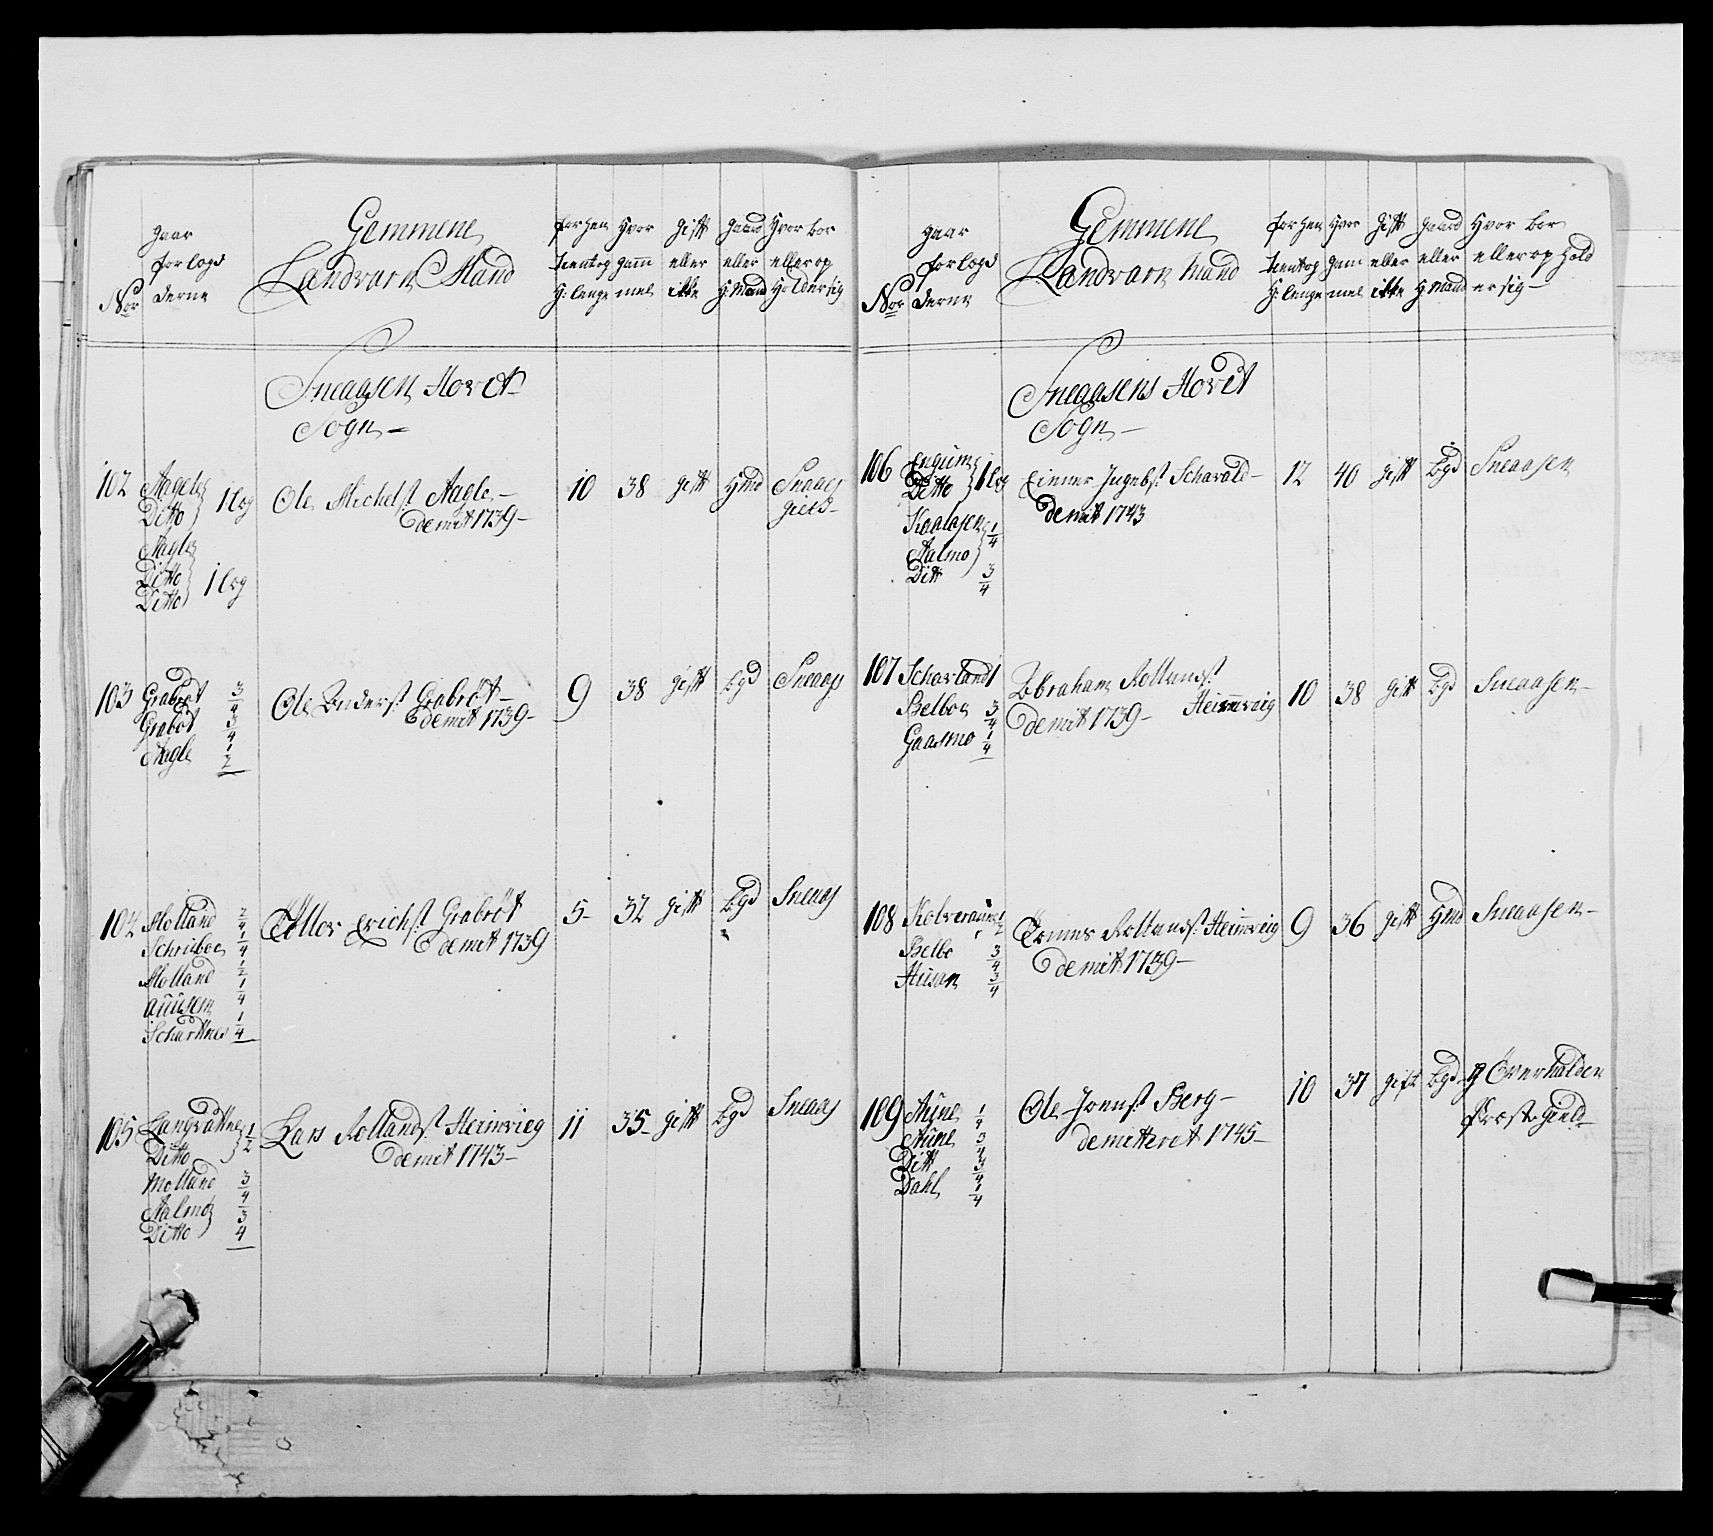 Nor
gaar
forlogs
derne
Gemmene
Landvarn Mand
forhen
tientog
H: lenge
Hvor
gamm
mel
Gift
eller
ikke
gaard
eller
H: Mand
Hvor bor
eller op
Holder sig
Sneaasen Hovet
Sogn
102 Aagle
Ditto 1 log
Aagle
Ditto
Ditto 1 log
Ole Michels: Aagle
demit 1739 10 38 gift Hmd Sneaas
gield
103 Grabrot 3/4
Grabot 3/4
Aagle 1/2
Ole Anders: Grabrot
demit 1739 9 38 gift bgd Sneaas
104 Molland 2/4
Schriboe 1/4
Molland 1/2
1/4
Scharknes 1/4
Erichs: Grabröt
demit 1739 5 32 gift bgd Sneaas
105 Langvattne
Ditto 1/2
Molland 3/4
Aalmo
Ditto 3/4
Lars Rollands: Heimvieg
demit 1743 11 35 gift bgd Sneaas
Nor
gaar
forlogs
derne
Gemmene
Landvarn Mand
forhen
tientog
H: lenge
Hvor
gam
mel
Gift
eller
ikke
gaard
eller
H: Mand
Hvor bor
eller op hold
er sig
Sneaasens Hovet
Sogn
106 Engum
Ditto 1 log
Kaalaasen 1/4
Aalmo
Ditt 3/4
Einner Ingebs: Scharald
demit 1743 12 40 gift bgd Sneaasen
107 Scharland 1
Belboe 3/4
Gaasmo 1/4
Abraham Rollands:
Heimveig
demit 1739 10 38 gift bgd Sneaasen
108 1/2
Belbo 3/4
Husan 3/4
Tomes Rollands: Heimveig
demit 1739 9 36 gift Hmd Sneaasen
109 Aune 1/4
Aune 3/4
Ditt 3/4
Dahl 1/4
Ole Joens: Berg
demitteret 1745 10 37 gift bgd Överhalden
Præstegield